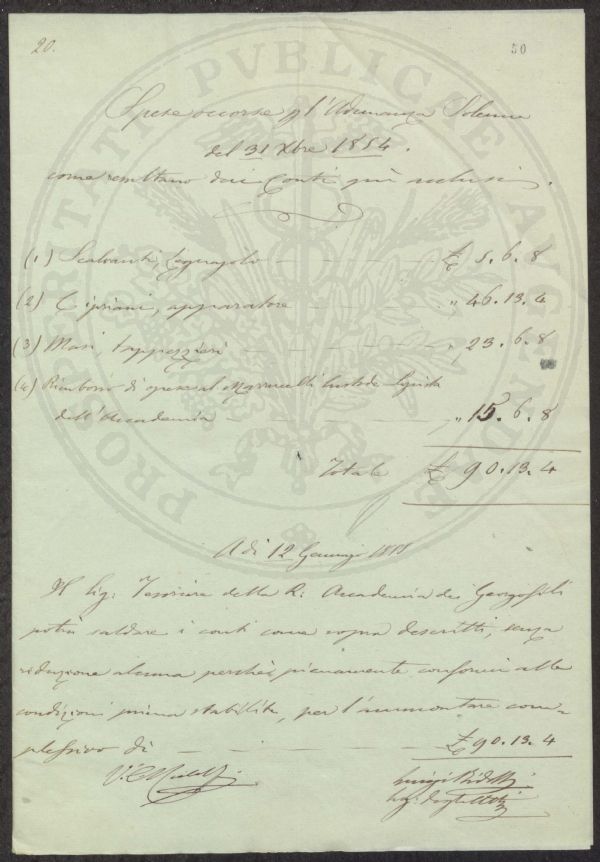 20.
50
PROSPERITATI PVBLICAE AVGENDAE
Spese occorse p l'Adunanza Solenne
del 31 Xbre 1854.
come resultano dai Conti qui acclusi.
(1) Scalvanti, Legnajolo — £ 5.6.8
(2) Cipriani, apparatore — " 46.13.4
(3) Masi, tappezzieri — " 23.6.8
(4) Rimborso di spese al Marrucelli Custode
dell'Accademia — " 15.6.8
Totale £ 90.13.4
A dì 12 Gennajo
Il Sig: Tesoriere della R: Accademia dei Georgofili
potrà saldare i conti come sopra descritti, senza
riduzione alcuna perchè pienamente conformi alle
condizioni prima stabilite, per l'ammontare com-
plessivo di — £ 90.13.4
Luigi Ridolfi